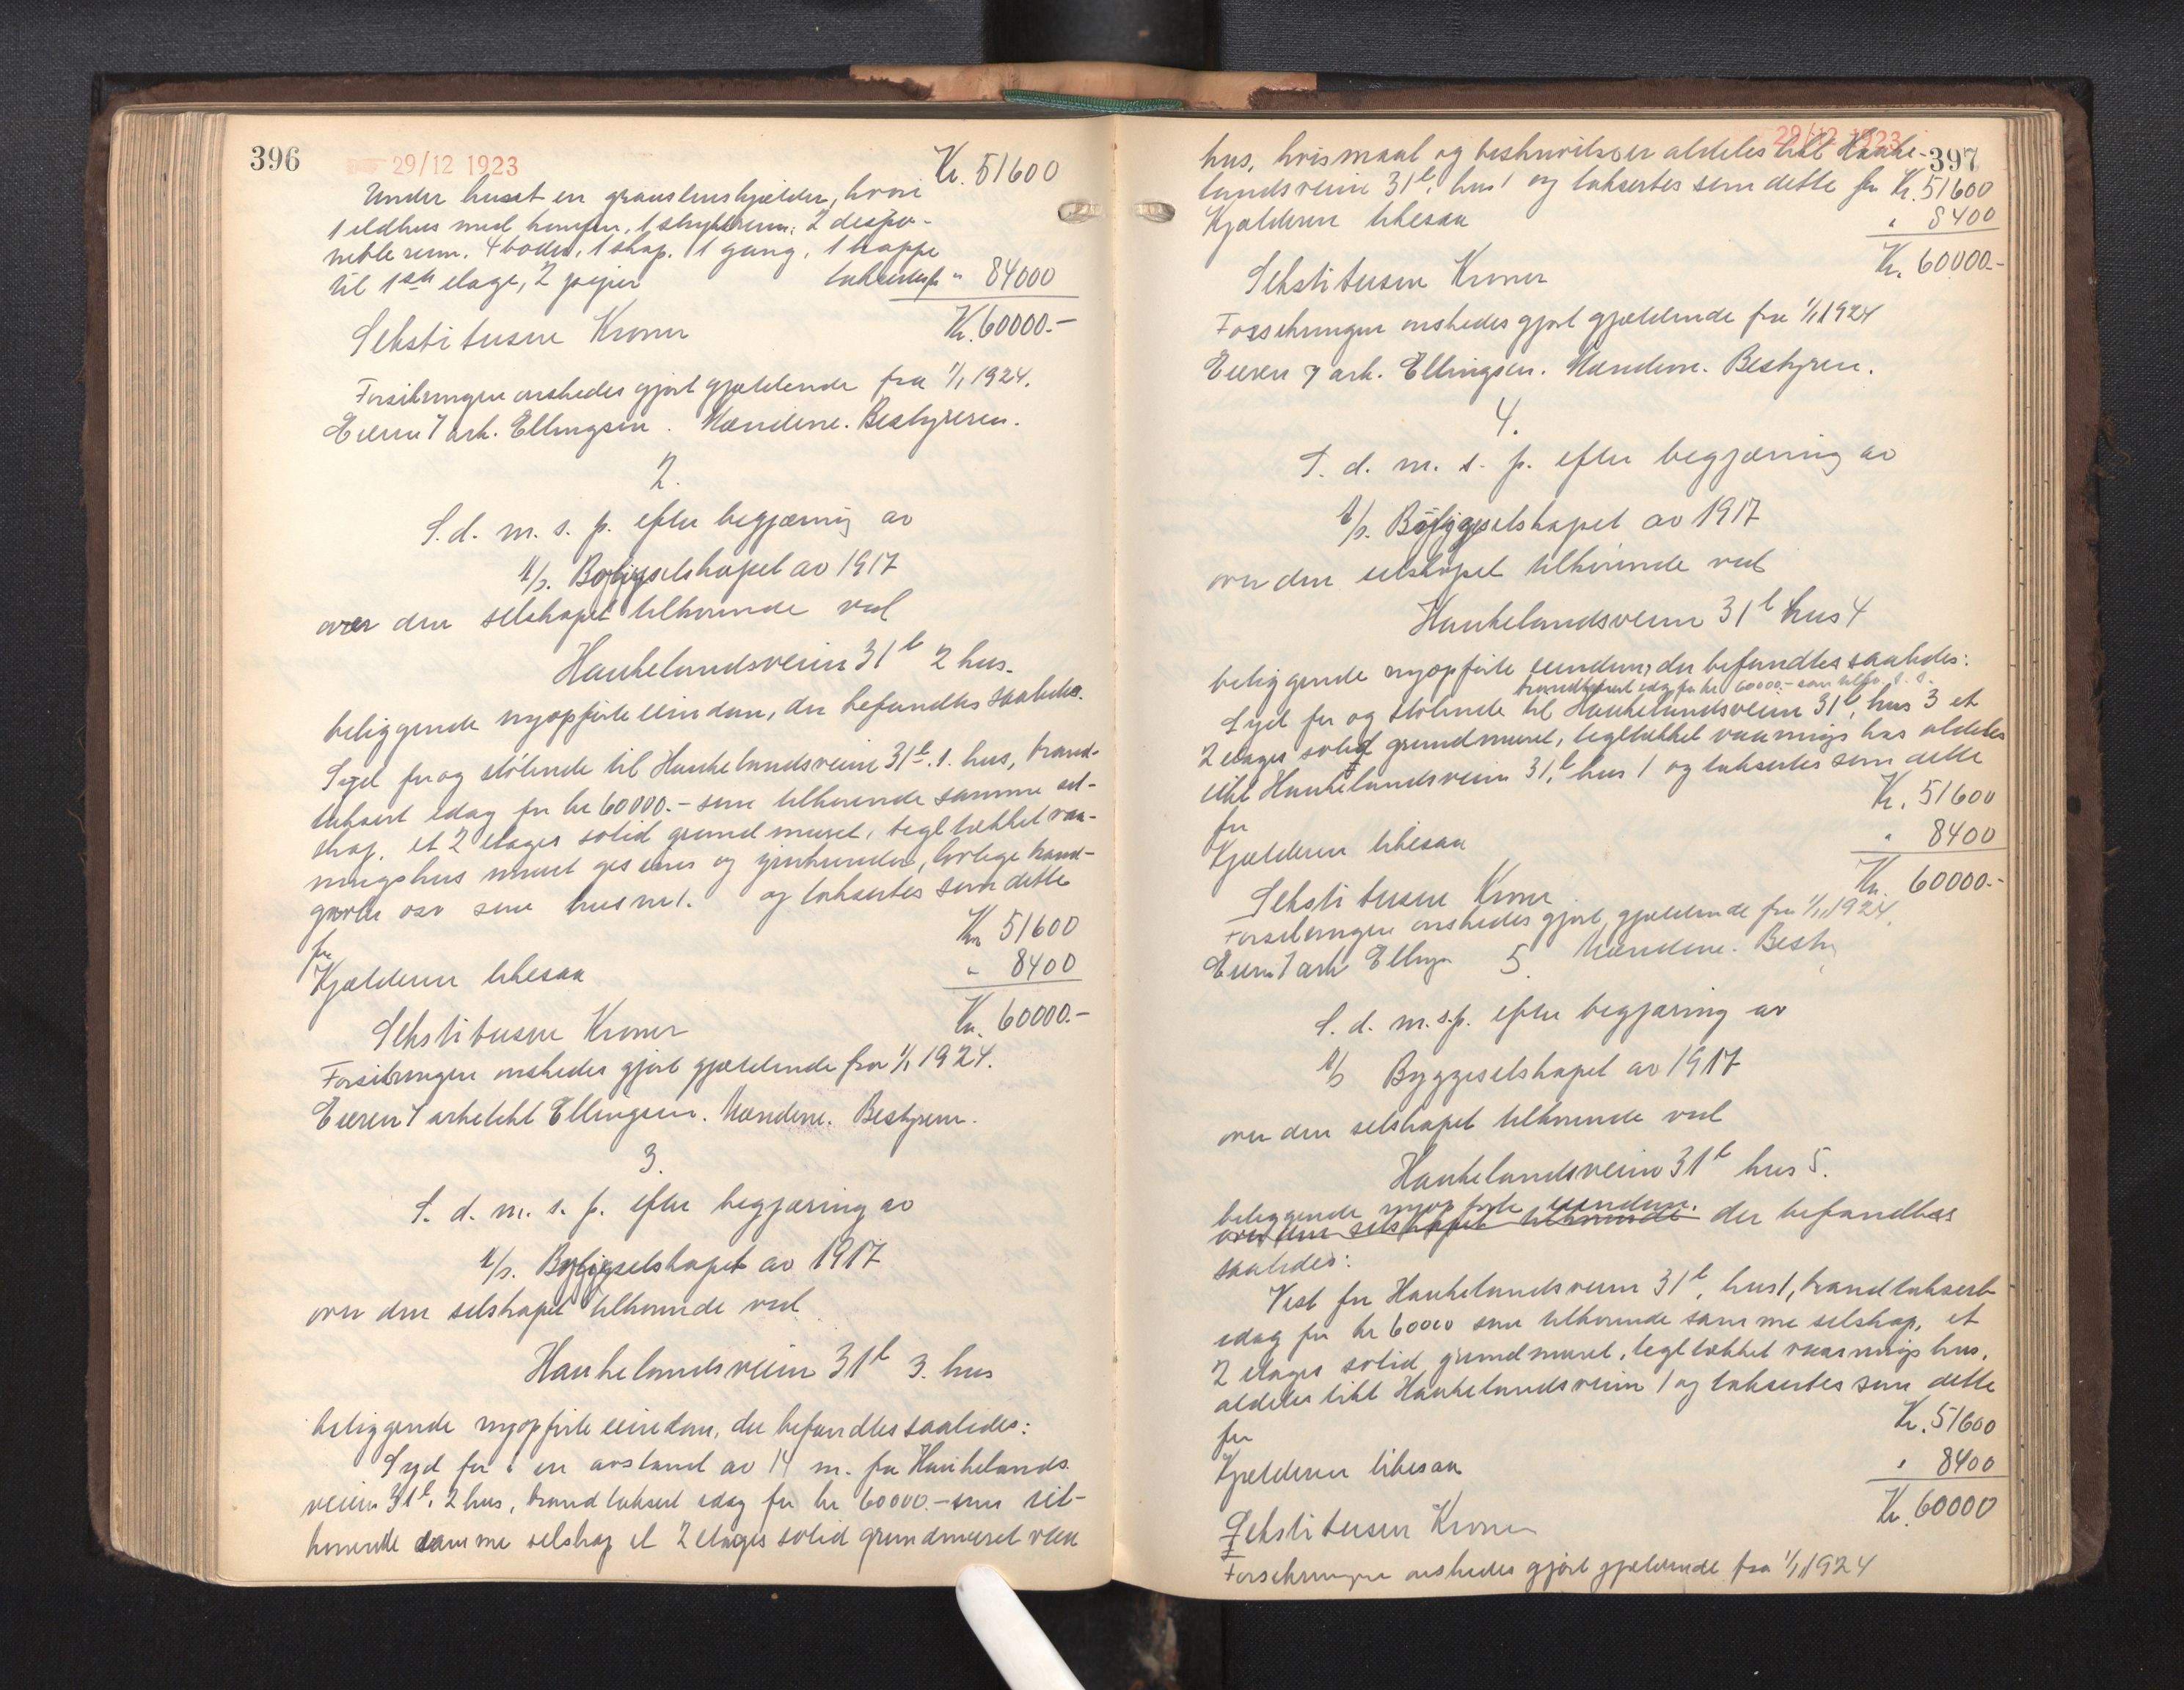 396
29/12 1923
Kr. 51600
Under huset en graastenskjælder, hvori
1 ildhus med komfur, 1 strykerum, 2 dispo-
nible rum, 4 boder, 1 skap, 1 gang, 1 trappe
til 1ste etage, 2 piper takseres for " 84000
Sekstitusen Kroner Kr. 60000.-
Forsikringen ønskedes gjort gjældende fra 1/1 1924.
Eieren / ark. Ellingsen. Mændene. Bestyreren.
2.
S. d. m. s. p. efter begjæring av
A/s. Byggeselskapet av 1917
over den selskapet tilhørende ved
Haukelandsveien 31b 2 hus.
beliggende nyopførte eiendom, der befandtes saaledes.
Syd for og støtende til Haukelandsveien 31b. 1. hus, brand-
taksert idag for kr 60000.- som tilhørende samme sel-
skap, et 2 etages solid grundmuret, tegltækket vaa-
ningshus muret gesims og forkunder, lovlige brand-
gavler osv som hus nr 1. og taksertes som dette
for Kr 51600
Kjælderen likesaa " 8400
Sekstitusen Kroner Kr. 60000.-
Forsikringen ønskedes gjort gjældende fra 1/1 1924.
Eieren / arkitekt Ellingsen. Mændene. Bestyreren.
3.
S. d. m. s. p. efter begjæring av
A/s. Byggeselskapet av 1917
over den selskapet tilhørende ved
Haukelandsveien 31b 3. hus
beliggende nyopførte eiendom, der befandtes saaledes:
Syd for i en avstand av 14 m. fra Haukelands
veien 31b, 2 hus, brandtaksert idag for kr 60000.- som til-
hørende samme selskap et 2 etages solid grundmuret vaa
29/12 1923
397
hus, hvis maal og beskrivelse er aldeles likt Hauke-
landsveien 31b, hus 1 og taksertes som dette for Kr. 51600
Kjælderen likesaa " 8400
Sekstitusen Kroner Kr. 60000.-
Forsikringen ønskedes gjort gjældende fra 1/1 1924
Eieren / ark. Ellingsen. Mændene. Bestyren.
4.
S. d. m. s. p. efter begjæring av
A/s. Byggeselskapet av 1917
over den selskapet tilhørende ved
Haukelandsveien 31b hus 4
beliggende nyopførte eiendom, der befandtes saaledes:
brandtaksert idag for kr 60000.- som tilhø. s. s.
Syd for og støtende til Haukelandsveien 31b, hus 3 et
2 etages solid grundmuret, tegltækket vaanings hus aldeles
likt Haukelandsveien 31b, hus 1 og taksertes som dette
for Kr. 51600
Kjælderen likesaa " 8400
Sekstitusen Kroner Kr. 60000.-
Forsikringen ønskedes gjort gjældende fra 1/1 1924.
Eieren / ark Ellings Mændene. Besty
5.
S. d. m. s. p. efter begjæring av
A/s Byggeselskapet av 1917
over den selskapet tilhørende ved
Haukelandsveien 31b hus 5.
beliggende nyopførte eiendom.
over den selskapet tilhørende der befandtes
saaledes:
Vest for Haukelandsveien 31b, hus 1, brandtaksert
idag for kr 60000 som tilhørende samme selskap, et
2 etages solid grundmuret, tegltækket vaanings hus,
aldeles likt Haukelandsveien 1 og taksertes som dette
for Kr. 51600
Kjælderen likesaa " 8400
Sekstitusen Kroner Kr. 60000
Forsikringen ønskedes gjort gjældende fra 1/1 1924